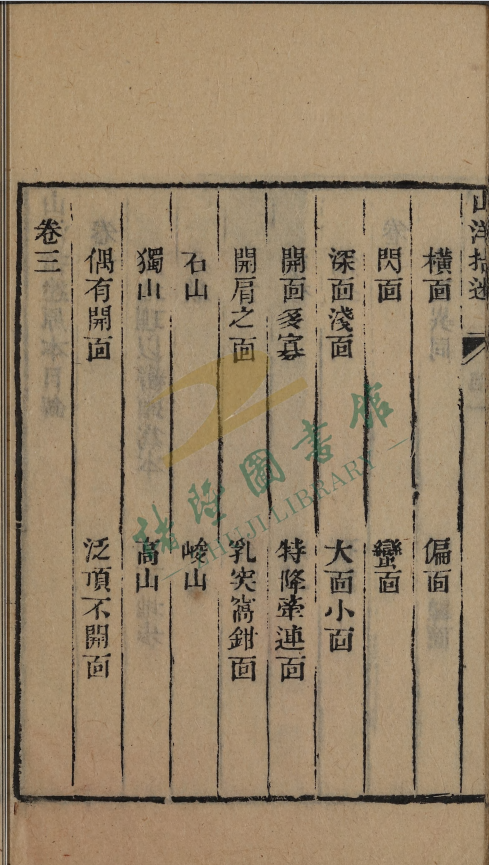 山洋指迷
橫面 偏面
閃面 蠻面
深面淺面 大面小面
開面多寡 特降牽連面
開肩之面 乳突窩鉗面
石山 峻山
獨山 高山
偶有開面 泛頂不開面
卷三
JI LIBRARY
圖書館